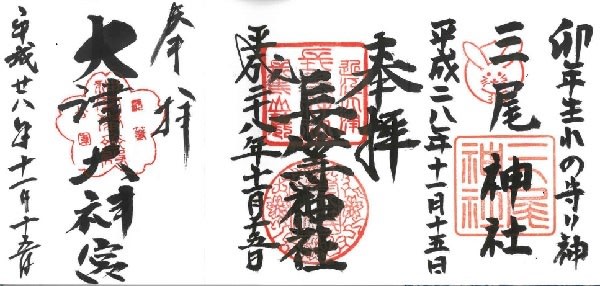 卯年生れの守り神
三尾神社
平成二八年十一月十五日
三尾神社
奉拝
長等神社
平成二十八年十一月十五日
奉拝
大津大神宮
平成廿八年十一月十五日